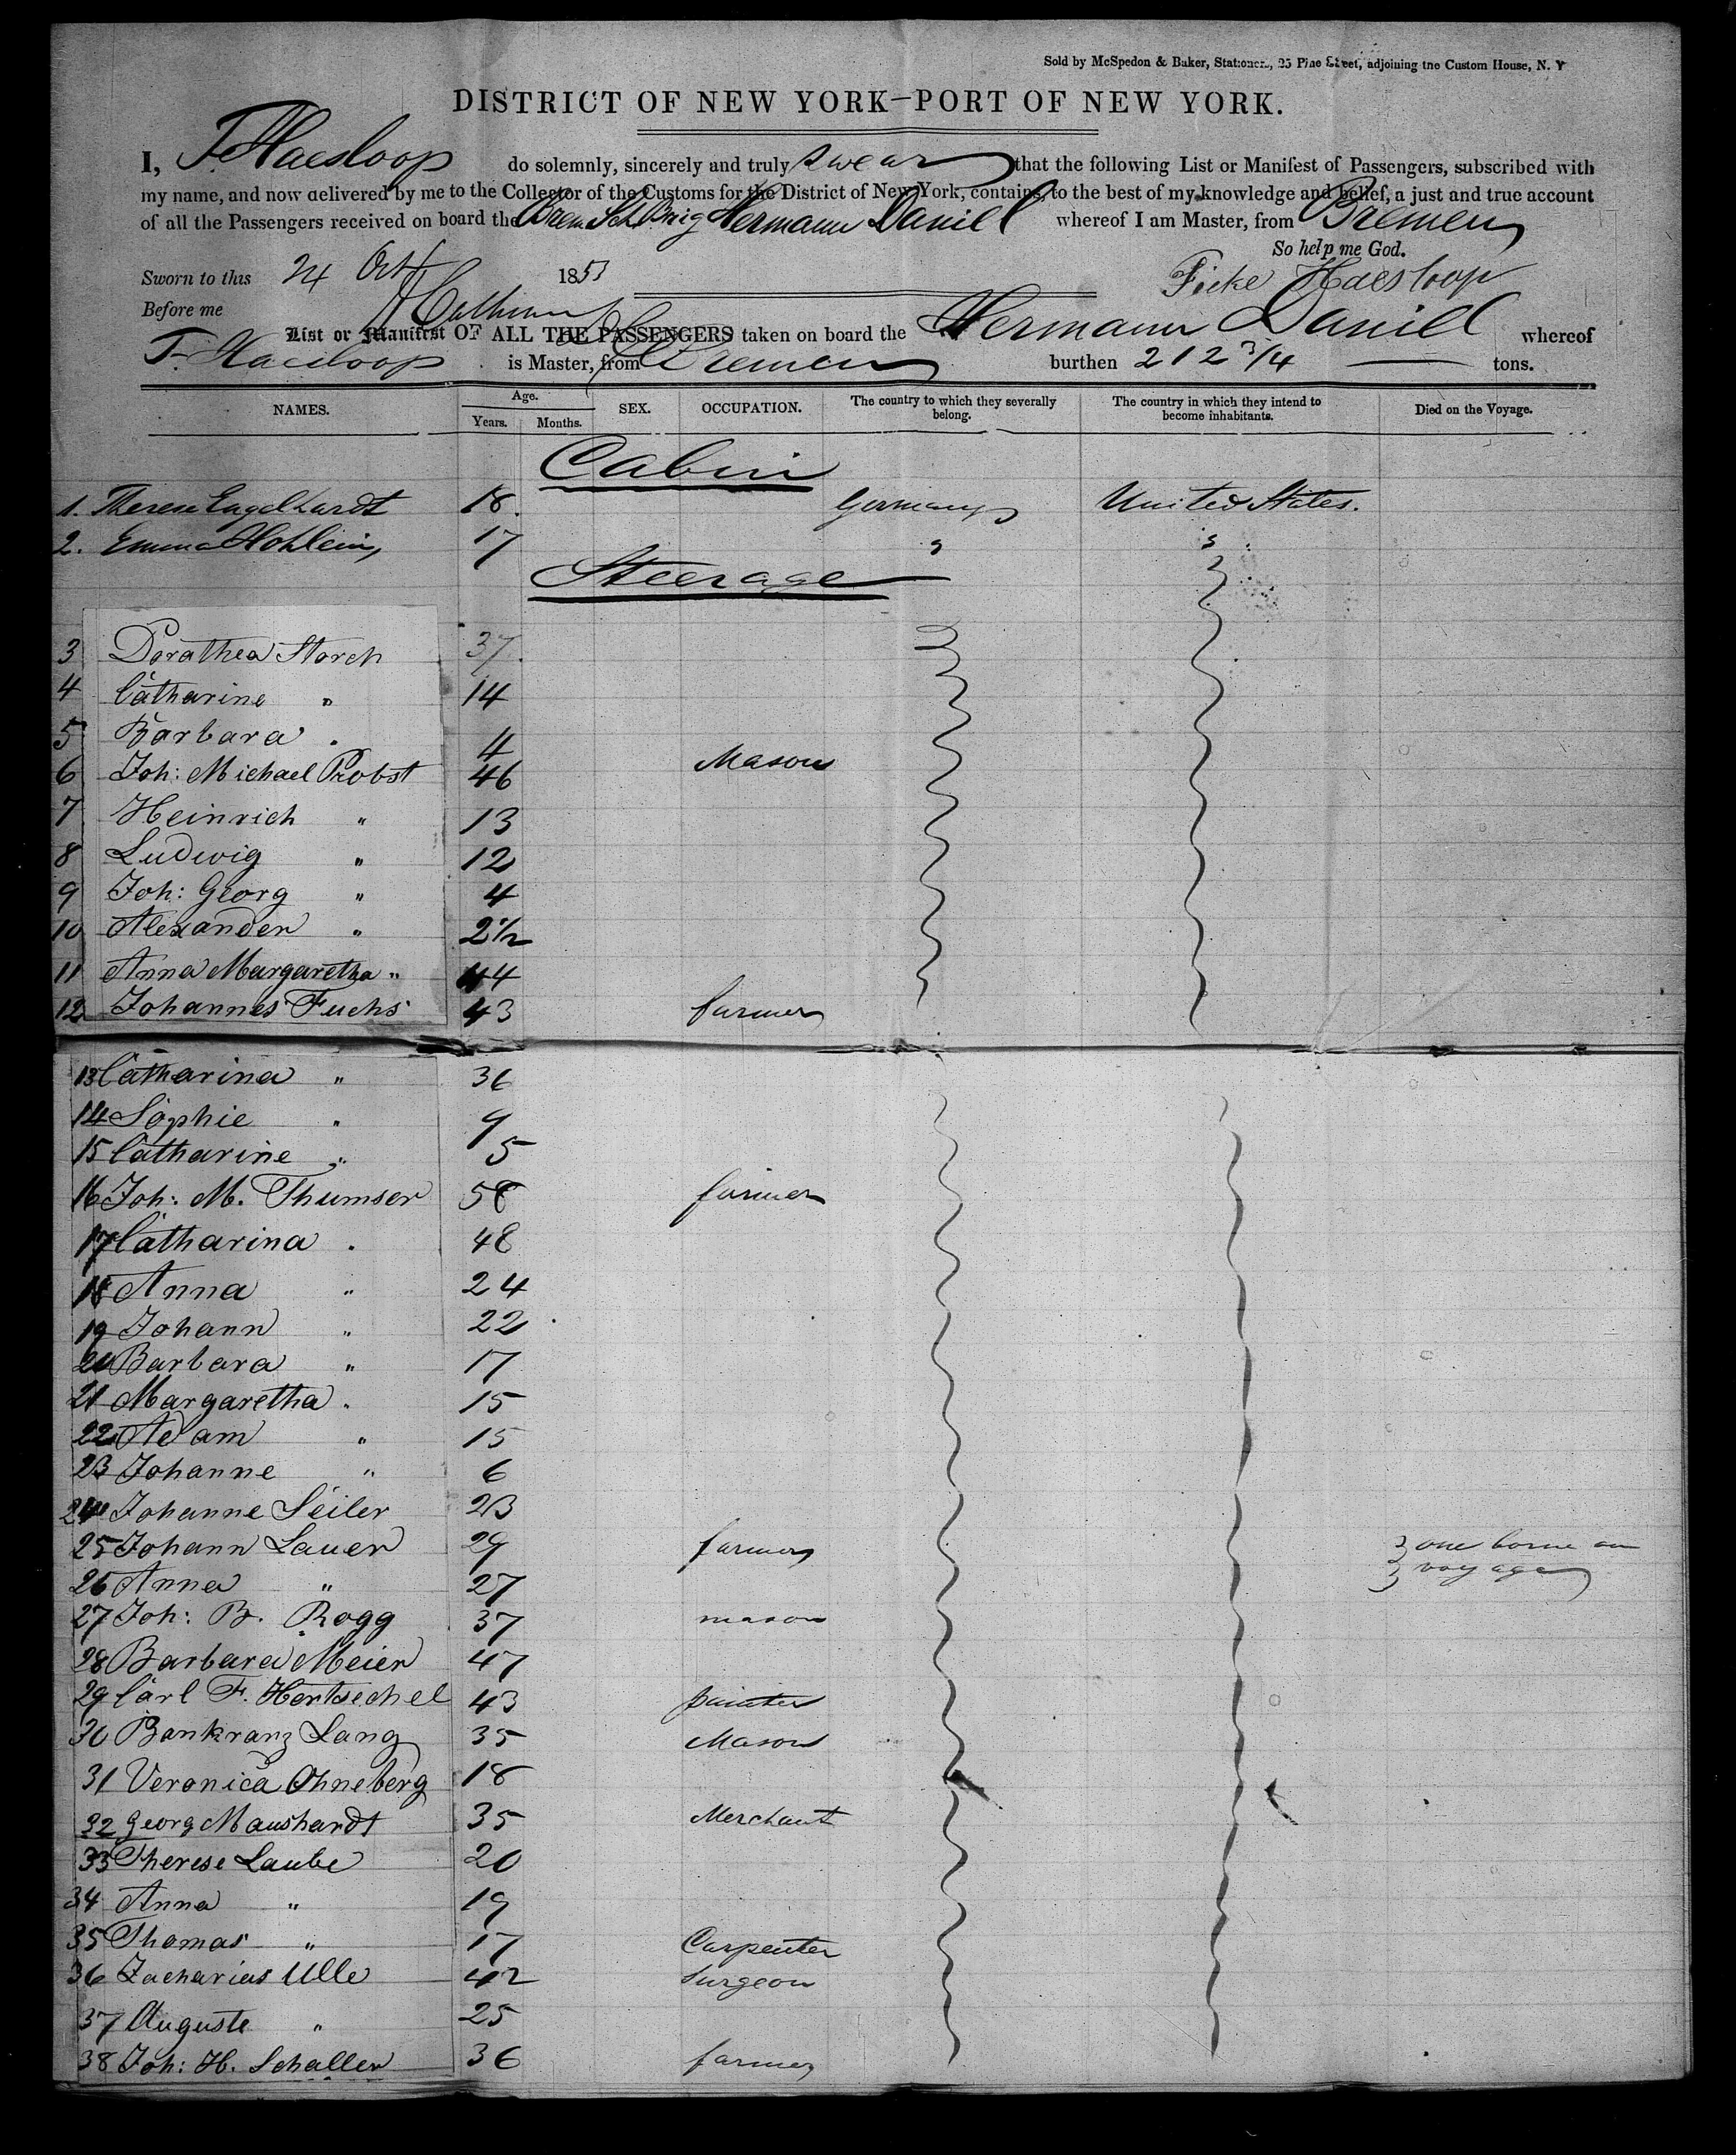 Sold by McSpedon & Baker, Stationers, 25 Pine Street, adjoining the Custom House, N. Y
DISTRICT OF NEW YORK—PORT OF NEW YORK.
I, F. Haesloop do solemnly, sincerely and truly swear that the following List or Manifest of Passengers, subscribed with
my name, and now delivered by me to the Collector of the Customs for the District of New York, contains, to the best of my knowledge and belief, a just and true account
of all the Passengers received on board the Brem. Sch. Brig Hermann Daniel whereof I am Master, from Bremen
So help me God.
Sworn to this 24 Oct 1853 Ficke Haesloop
Before me
List or Manifest OF ALL THE PASSENGERS taken on board the Hermann Daniel whereof
F. Haesloop is Master, from Bremen burthen 212 3/4 tons.
NAMES. Age. Years. Months. SEX. OCCUPATION. The country to which they severally belong. The country in which they intend to become inhabitants. Died on the Voyage.
Cabin
1. Therese Engelhardt 18. Germany United States.
2. Emma Hohlein, 17 "  "
Steerage
3 Dorathea Storch 37.
4 Catharine " 14
5 Barbara " 4
6 Joh: Michael Probst 46 Mason
7 Heinrich " 13
8 Ludwig " 12
9 Joh: Georg " 4
10 Alexander " 2 1/2
11 Anna Margaretha " 44
12 Johannes Fuchs 43 farmer
13 Catharina " 36
14 Sophie " 9
15 Catharine " 5
16 Joh: M. Thumser 58 farmer
17 Catharina " 48
18 Anna " 24
19 Johann " 22
20 Barbara " 17
21 Margaretha " 15
22 Adam " 15
23 Johanne " 6
24 Johanne Seiler 23
25 Johann Lauer 29 farmer one borne on
26 Anna " 27 voyage
27 Joh: B. Rogg 37 mason
28 Barbara Meier 47
29 Carl F. Hertsechel 43 painter
30 Bankranz Lang 35 Mason
31 Veronica Ohneberg 18
32 Georg Maushardt 35 Merchant
33 Therese Laube 20
34 Anna " 19
35 Thomas " 17 Carpenter
36 Zacharias Ulle 42 Surgeon
37 Auguste " 25
38 Joh: H. Schaller 36 farmer